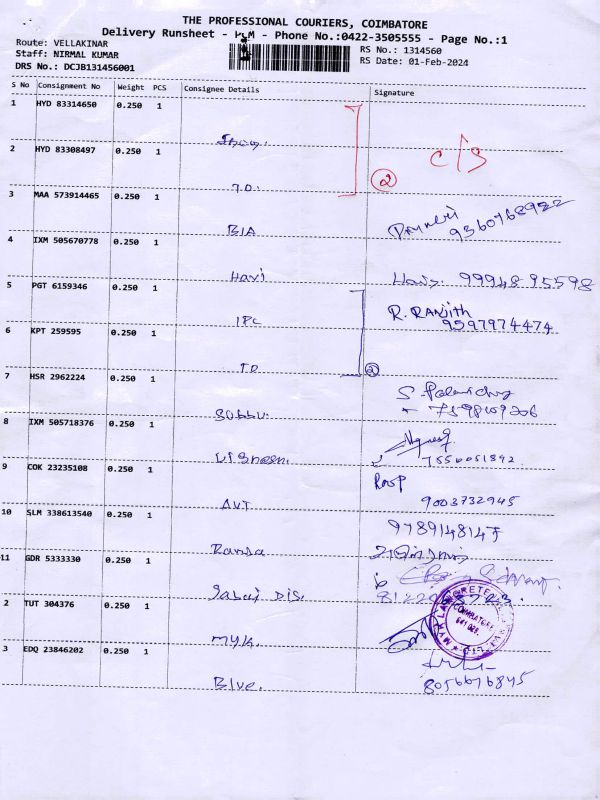 THE PROFESSIONAL COURIERS, COIMBATORE
Delivery Runsheet - - Phone No.:0422-3505555 - Page No.:1
Route: VELLAKINAR
Staff: NIRMAL KUMAR
DRS No.: DCJB131456001
RS No.: 1314560
RS Date: 01-Feb-2024
S No Consignment No Weight PCS Consignee Details Signature
1 HYD 83314650 0.250 1
2 HYD 83308497 0.250 1
T.D.
② c/s
3 MAA 573914465 0.250 1
BIA
9360768922
4 IXM 505670778 0.250 1
Hari Haris. 99948 95598
5 PGT 6159346 0.250 1
IPC R. RANJITH
9597974474
6 KPT 259595 0.250 1
TD ②
7 HSR 2962224 0.250 1
Subbu.
8 IXM 505718376 0.250 1
Vignesh.
7550051892
9 COK 23235108 0.250 1
AVT 9003732945
10 SLM 338613540 0.250 1
Ransa
11 GDR 5333330 0.250 1
Sabaj DIS.
2 TUT 304376 0.250 1
MYK. COIMBATORE
3 EDQ 23846202 0.250 1
Blue. 8056676845